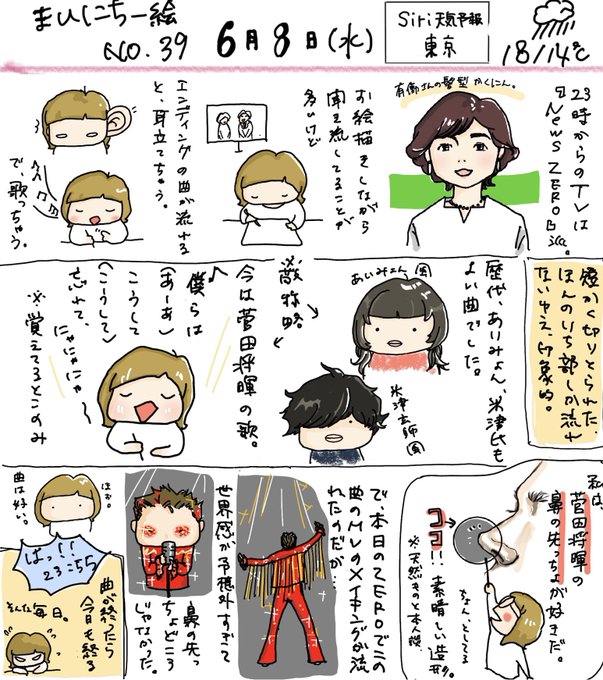 まいにち一絵
NO.39
6月8日(水)
Siri天気予報
東京
18/14℃
23時からのTVは
NEWS ZERO派。
有働さんの髪型かくにん。
お絵描きしながら
聞き流してることが
多いけど
エンディングの曲が流れる
と、耳立てちゃう。
で、歌っちゃう。
短かく切りとられた、
ほんのいち部しか流れ
ないゆえ、印象的。
歴代、あいみょん、米津氏も
よい曲でした。
あいみょん
米津玄師
※敬称略
今は菅田将暉の歌。
僕らは
(あーあ)
こうして
(こうして)
忘れて、
にゃにゃにゃ〜
※覚えてるとこのみ
私は、
菅田将暉の
鼻の先っちょが好きだ。
ココ!!
素晴しい造形。
※天然きっと本人談
ちょん、としてる
で、本日のZEROでこの
曲のMVのメイキングが流
れたのだが…
世界感が予想外すぎて
鼻の先っ
ちょどころ
じゃなかった。
ほお。
曲は好い。
はっ!!
23:55
曲が終ったら
今日も終る
そんな毎日。